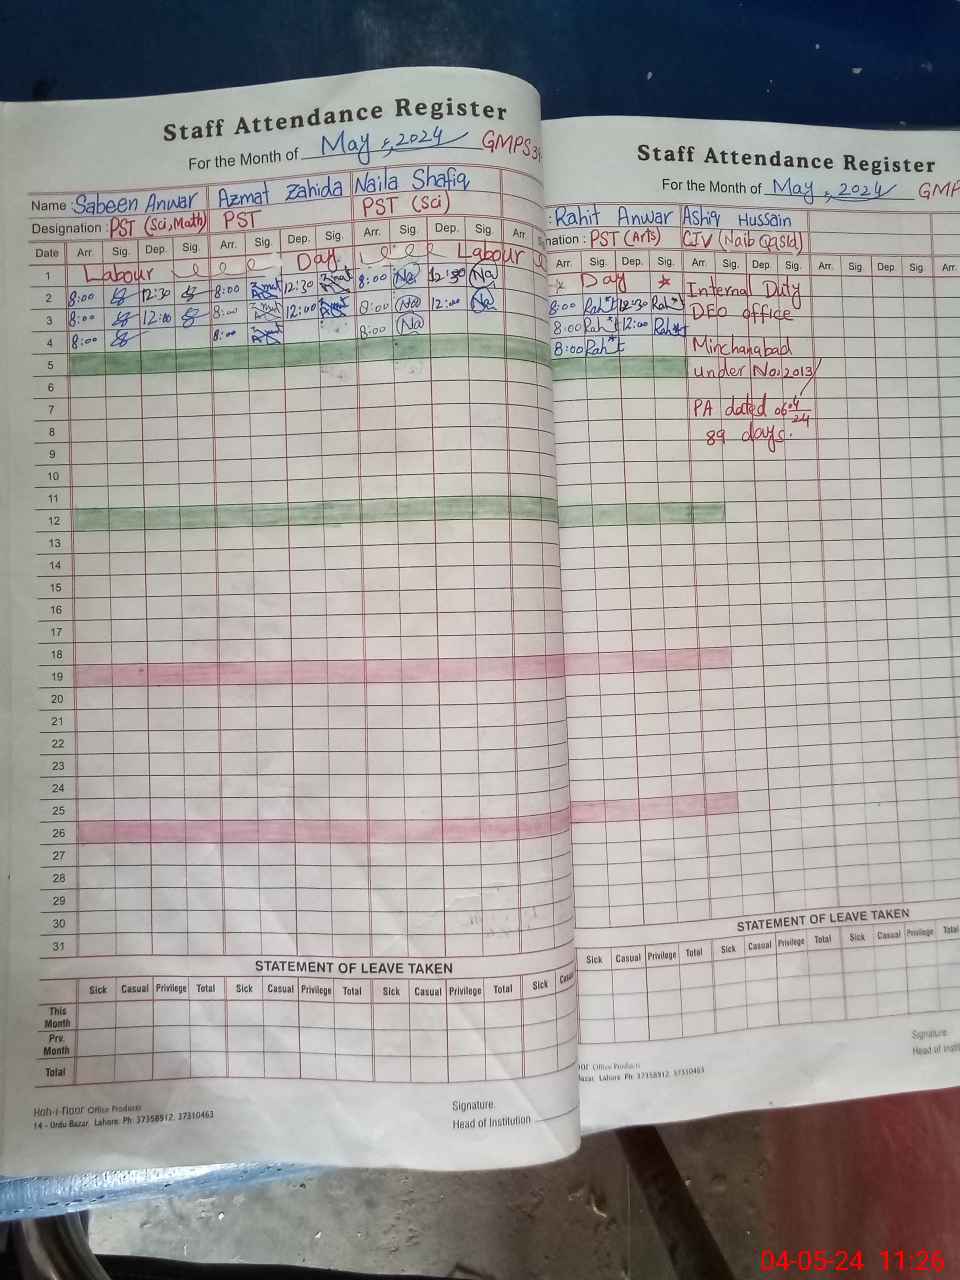 Staff Attendance Register
For the Month of May, 2024 GMPS
Name : Sabeen Anwar Azmat Zahida Naila Shafiq
Designation : PST (Sci, Math) PST PST (Sci)
Date Arr. Sig. Dep. Sig. Arr. Sig. Dep. Sig. Arr. Sig. Dep. Sig. Arr
1 Labour Day Labour
2 8:00 12:30 8:00 12:30 8:00 Na 12:30 Na
3 8:00 12:00 8:00 12:00 8:00 Na 12:00 Na
4 8:00 8:00 8:00 Na
5
6
7
8
9
10
11
12
13
14
15
16
17
18
19
20
21
22
23
24
25
26
27
28
29
30
31
STATEMENT OF LEAVE TAKEN
Sick Casual Privilege Total Sick Casual Privilege Total Sick Casual Privilege Total Sick
This Month
Prv. Month
Total
Office Products
14 - Urdu Bazar, Lahore. Ph: 37358912, 37310463
Signature.
Head of Institution
Staff Attendance Register
For the Month of May, 2024 GMP
: Rahit Anwar Ashiq Hussain
nation : PST (Arts) CIV (Naib Qasid)
Arr. Sig. Dep. Sig. Arr. Sig. Dep. Sig. Arr. Sig. Dep Sig. Arr.
Day Internal Duty
8:00 12:30 DEO office
8:00 12:00 Minchanabad
8:00 under No. 2013/
PA dated 06-04/24
89 days.
STATEMENT OF LEAVE TAKEN
Sick Casual Privilege Total Sick Casual Privilege Total Sick Casual Privilege Total
Office Products
Bazar, Lahore. Ph: 37358912, 37310463
Signature.
Head of Instit
04-05-24 11:26